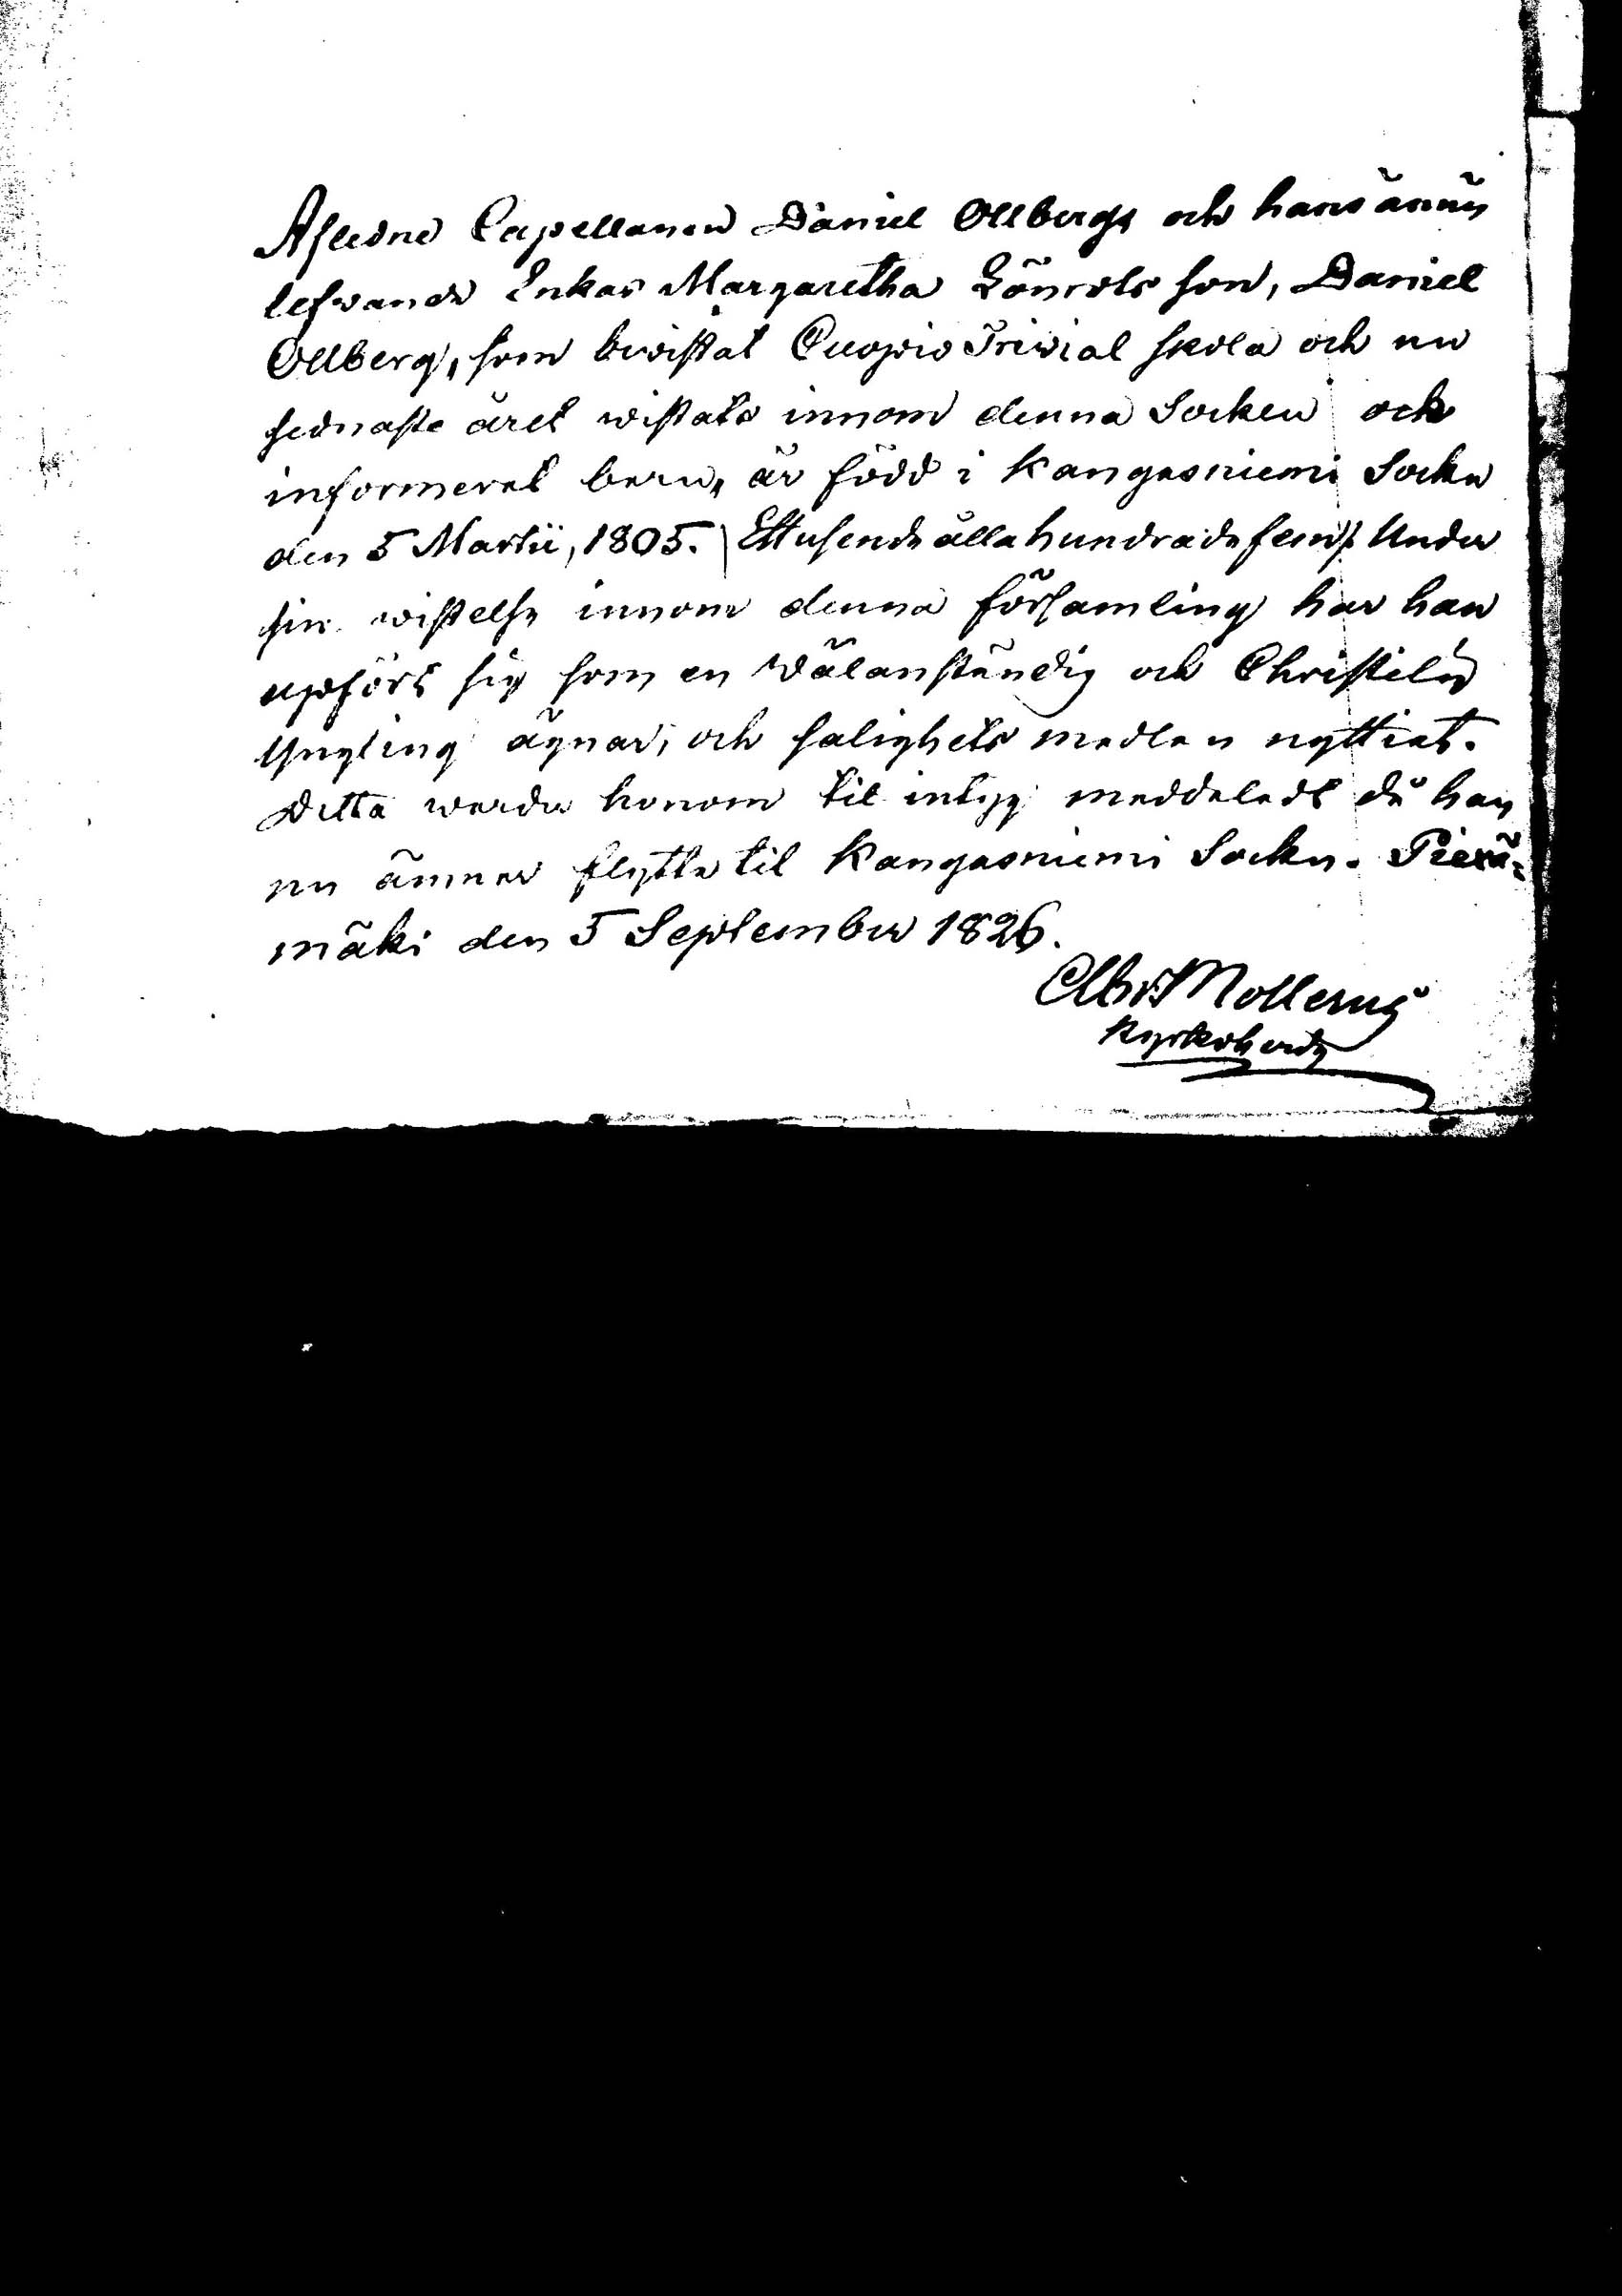 Aflidne Capellanen Daniel Ollbergs och hans ännu
lefvande Enkas Margaretha son, Daniel
Ollberg, som bewistat Cuopio Trivial skola och nu
sednaste året wistats innom denna Socken och
informerat barn, är född i Kangasniemi Socken
den 5 Martii, 1805. Ettusende åttahundrade fem/. Under
sin wistelse innom denna församling har han
upfört sig som en wälanständig och Christelig
Yngling ägnar, och salighets medlen nyttiat.
Detta warder honom til intyg meddeladt då han
nu ämnar flytta til Kangasniemi Socken. Piexä-
mäki den 5 September 1826.
Mollerus
Kyrkoherde